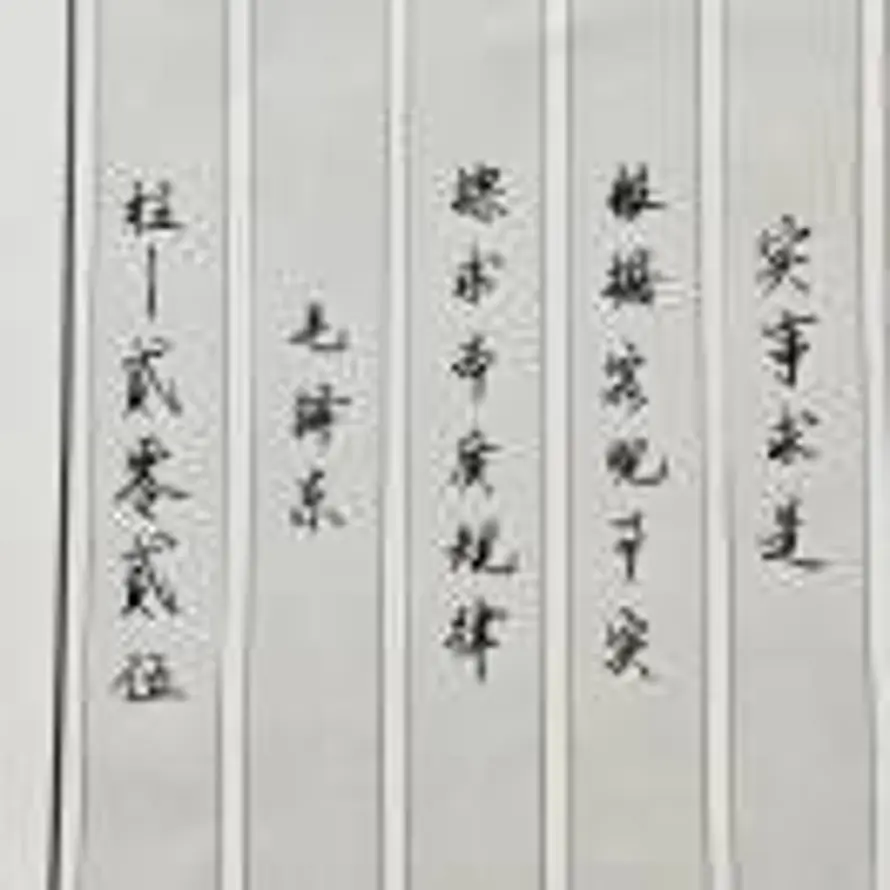 实事求是
根据客观事实
探求本质规律
毛泽东
贰零贰伍